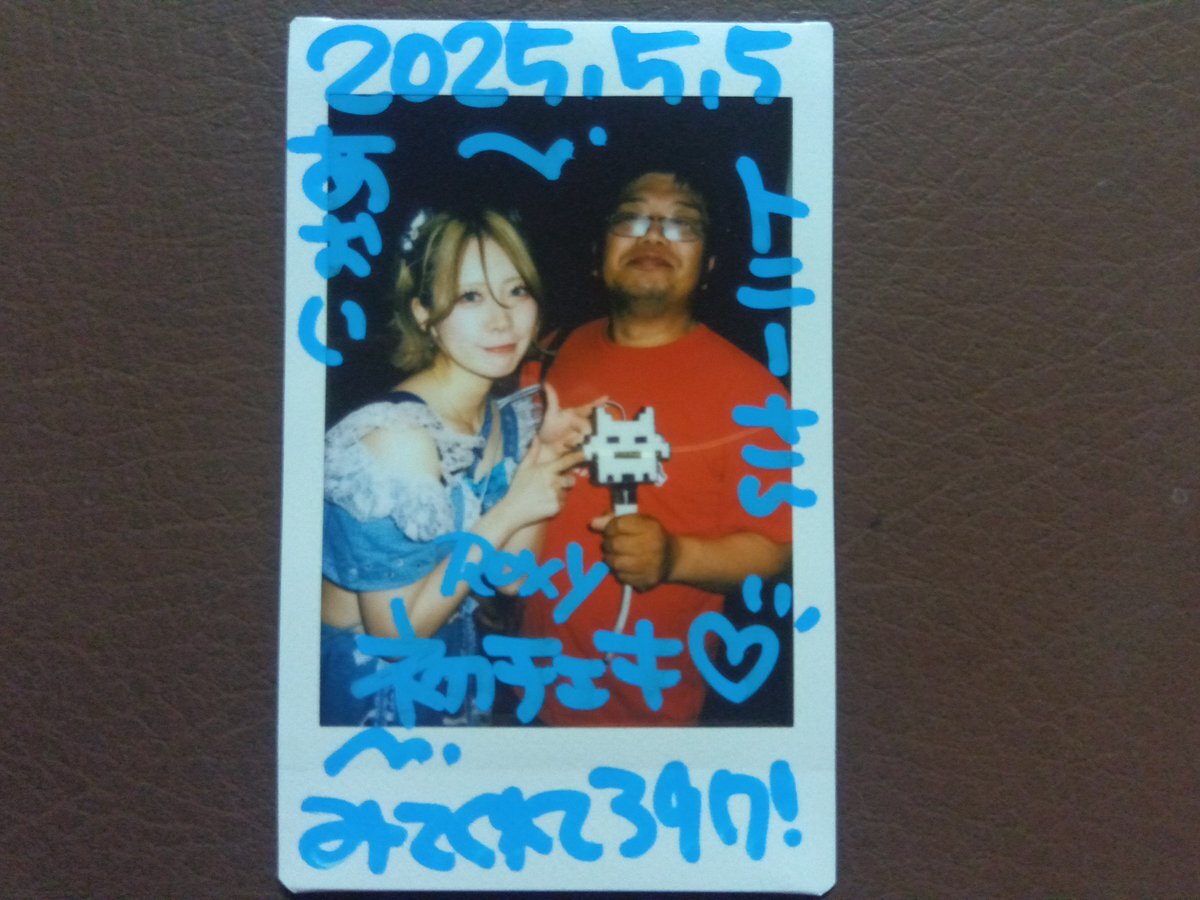 2025,5,5
トニーさん
Roxy
初チェキ♡
みてくれて39